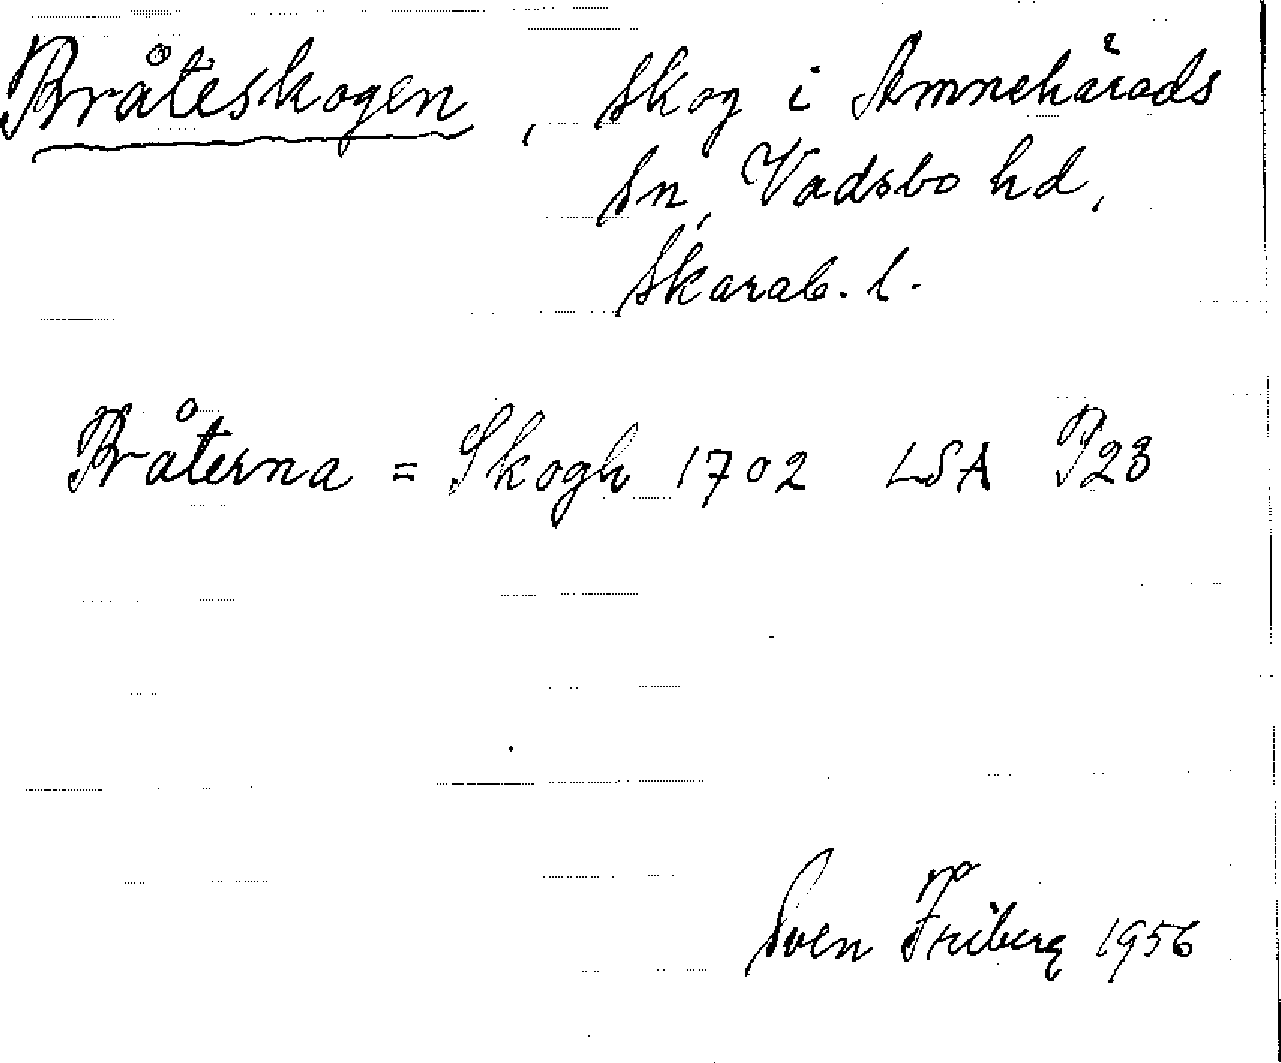 Bråteskogen, skog i Amnehärads
sn, Vadsbo hd,
Skarab. l.
Bråterna = Skogh 1702 LSA P23
Sven Friberg 1956